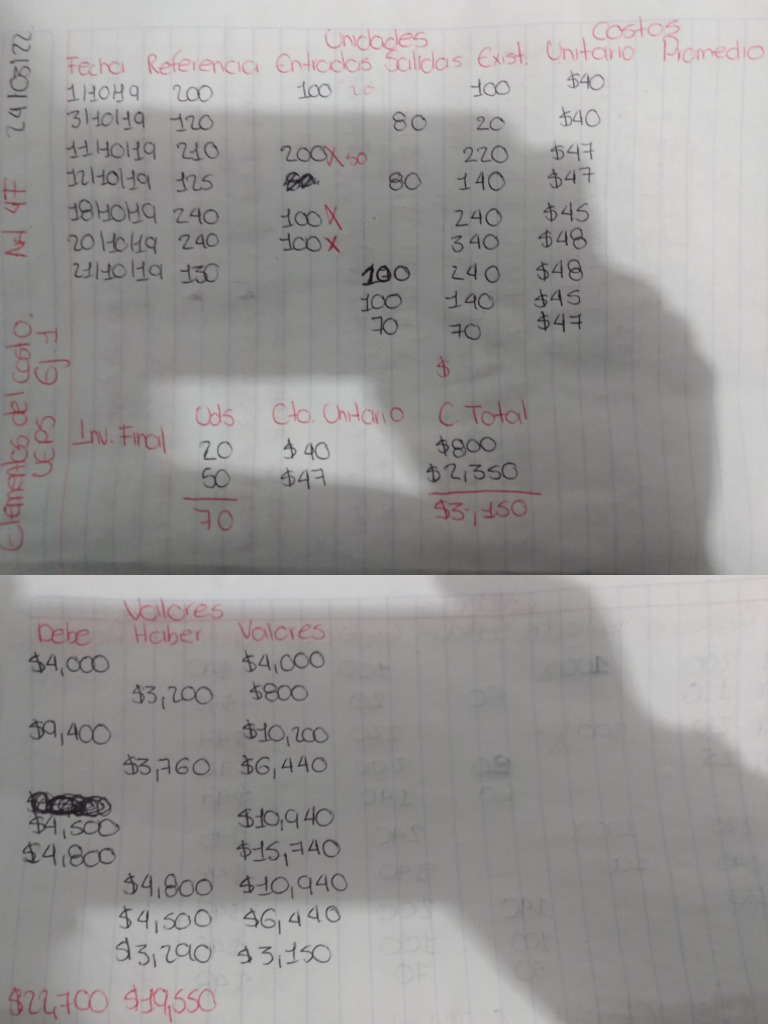 Elementos del costo. Act. 47 24/03/22
UEPS Ej. 1
Unidades Costos
Fecha Referencia Entradas Salidas Exist. Unitario Promedio
1/10/19 200 100 100 $40
3/10/19 120 80 20 $40
11/10/19 210 200X50 220 $47
12/10/19 125 80 140 $47
18/10/19 240 100X 240 $45
20/10/19 240 100X 340 $48
21/10/19 130 100 240 $48
100 140 $45
70 70 $47
$
Uds Cto. Unitario C. Total
Inv. Final
20 $40 $800
50 $47 $2,350
70 $3,150
Valores
Debe Haber Valores
$4,000 $4,000
$3,200 $800
$9,400 $10,200
$3,760 $6,440
$4,500 $10,940
$4,800 $15,740
$4,800 $10,940
$4,500 $6,440
$3,290 $3,150
$22,700 $19,550